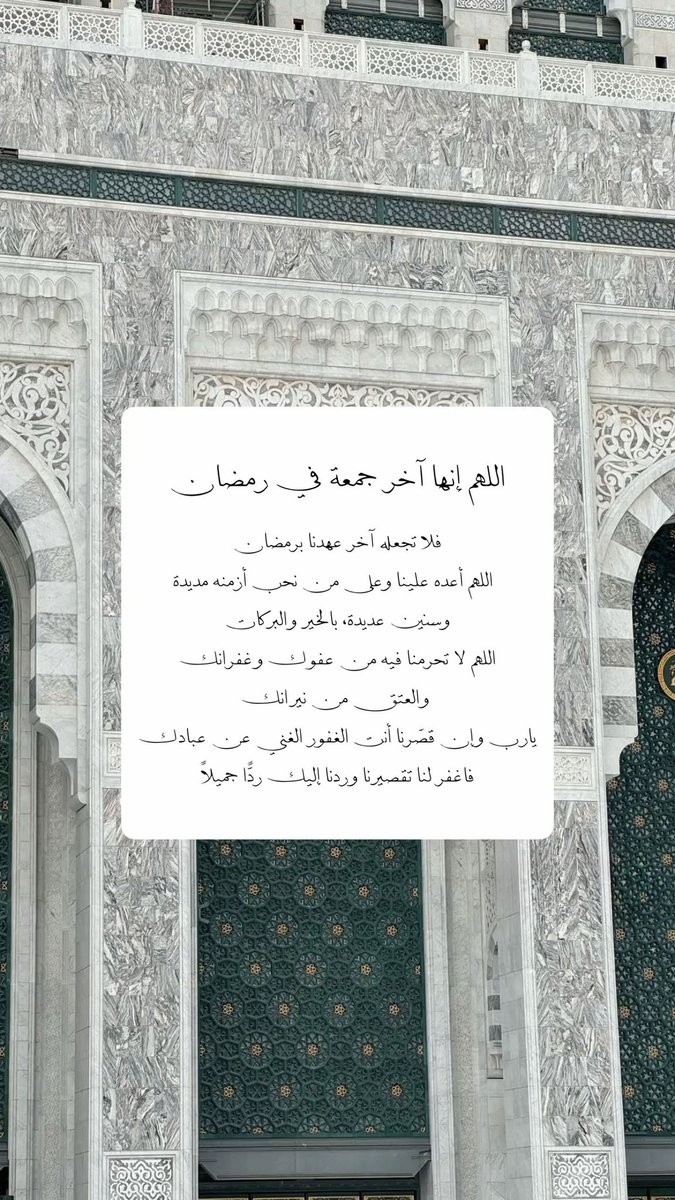 اللهم إنها آخر جمعة في رمضان
فلا تجعله آخر عهدنا برمضان
اللهم أعده علينا وعلى من نحب أزمنه مديدة
وسنين عديدة، بالخير والبركات
اللهم لا تحرمنا فيه من عفوك وغفرانك
والعتق من نيرانك
يارب وإن قصّرنا أنت الغفور الغني عن عبادك
فاغفر لنا تقصيرنا وردنا إليك ردًّا جميلاً